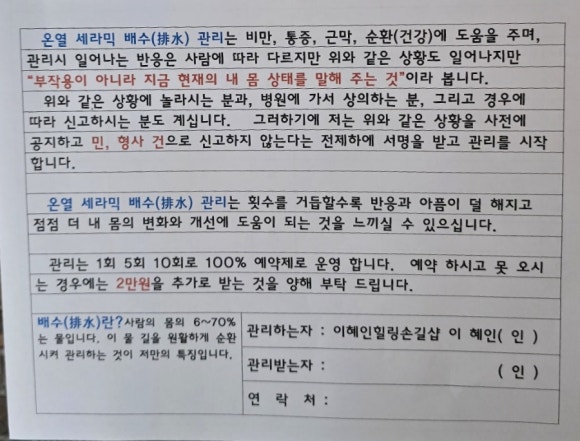 온열 세라믹 배수(排水) 관리는 비만, 통증, 근막, 순환(건강)에 도움을 주며,
관리시 일어나는 반응은 사람에 따라 다르지만 위와 같은 상황도 일어나지만
"부작용이 아니라 지금 현재의 내 몸 상태를 말해 주는 것"이라 봅니다.
위와 같은 상황에 놀라시는 분과, 병원에 가서 상의하는 분, 그리고 경우에
따라 신고하시는 분도 계십니다. 그러하기에 저는 위와 같은 상황을 사전에
공지하고 민, 형사 건으로 신고하지 않는다는 전제하에 서명을 받고 관리를 시작
합니다.
온열 세라믹 배수(排水) 관리는 횟수를 거듭할수록 반응과 아픔이 덜 해지고
점점 더 내 몸의 변화와 개선에 도움이 되는 것을 느끼실 수 있으십니다.
관리는 1회 5회 10회로 100% 예약제로 운영 합니다. 예약 하시고 못 오시
는 경우에는 2만원을 추가로 받는 것을 양해 부탁 드립니다.
배수(排水)란?사람의 몸의 6~70%
는 물입니다. 이 물 길을 원활하게 순환
시켜 관리하는 것이 저만의 특징입니다.
관리하는자 : 이혜인힐링손길샵 이 혜인( 인 )
관리받는자 : ( 인 )
연 락 처 :